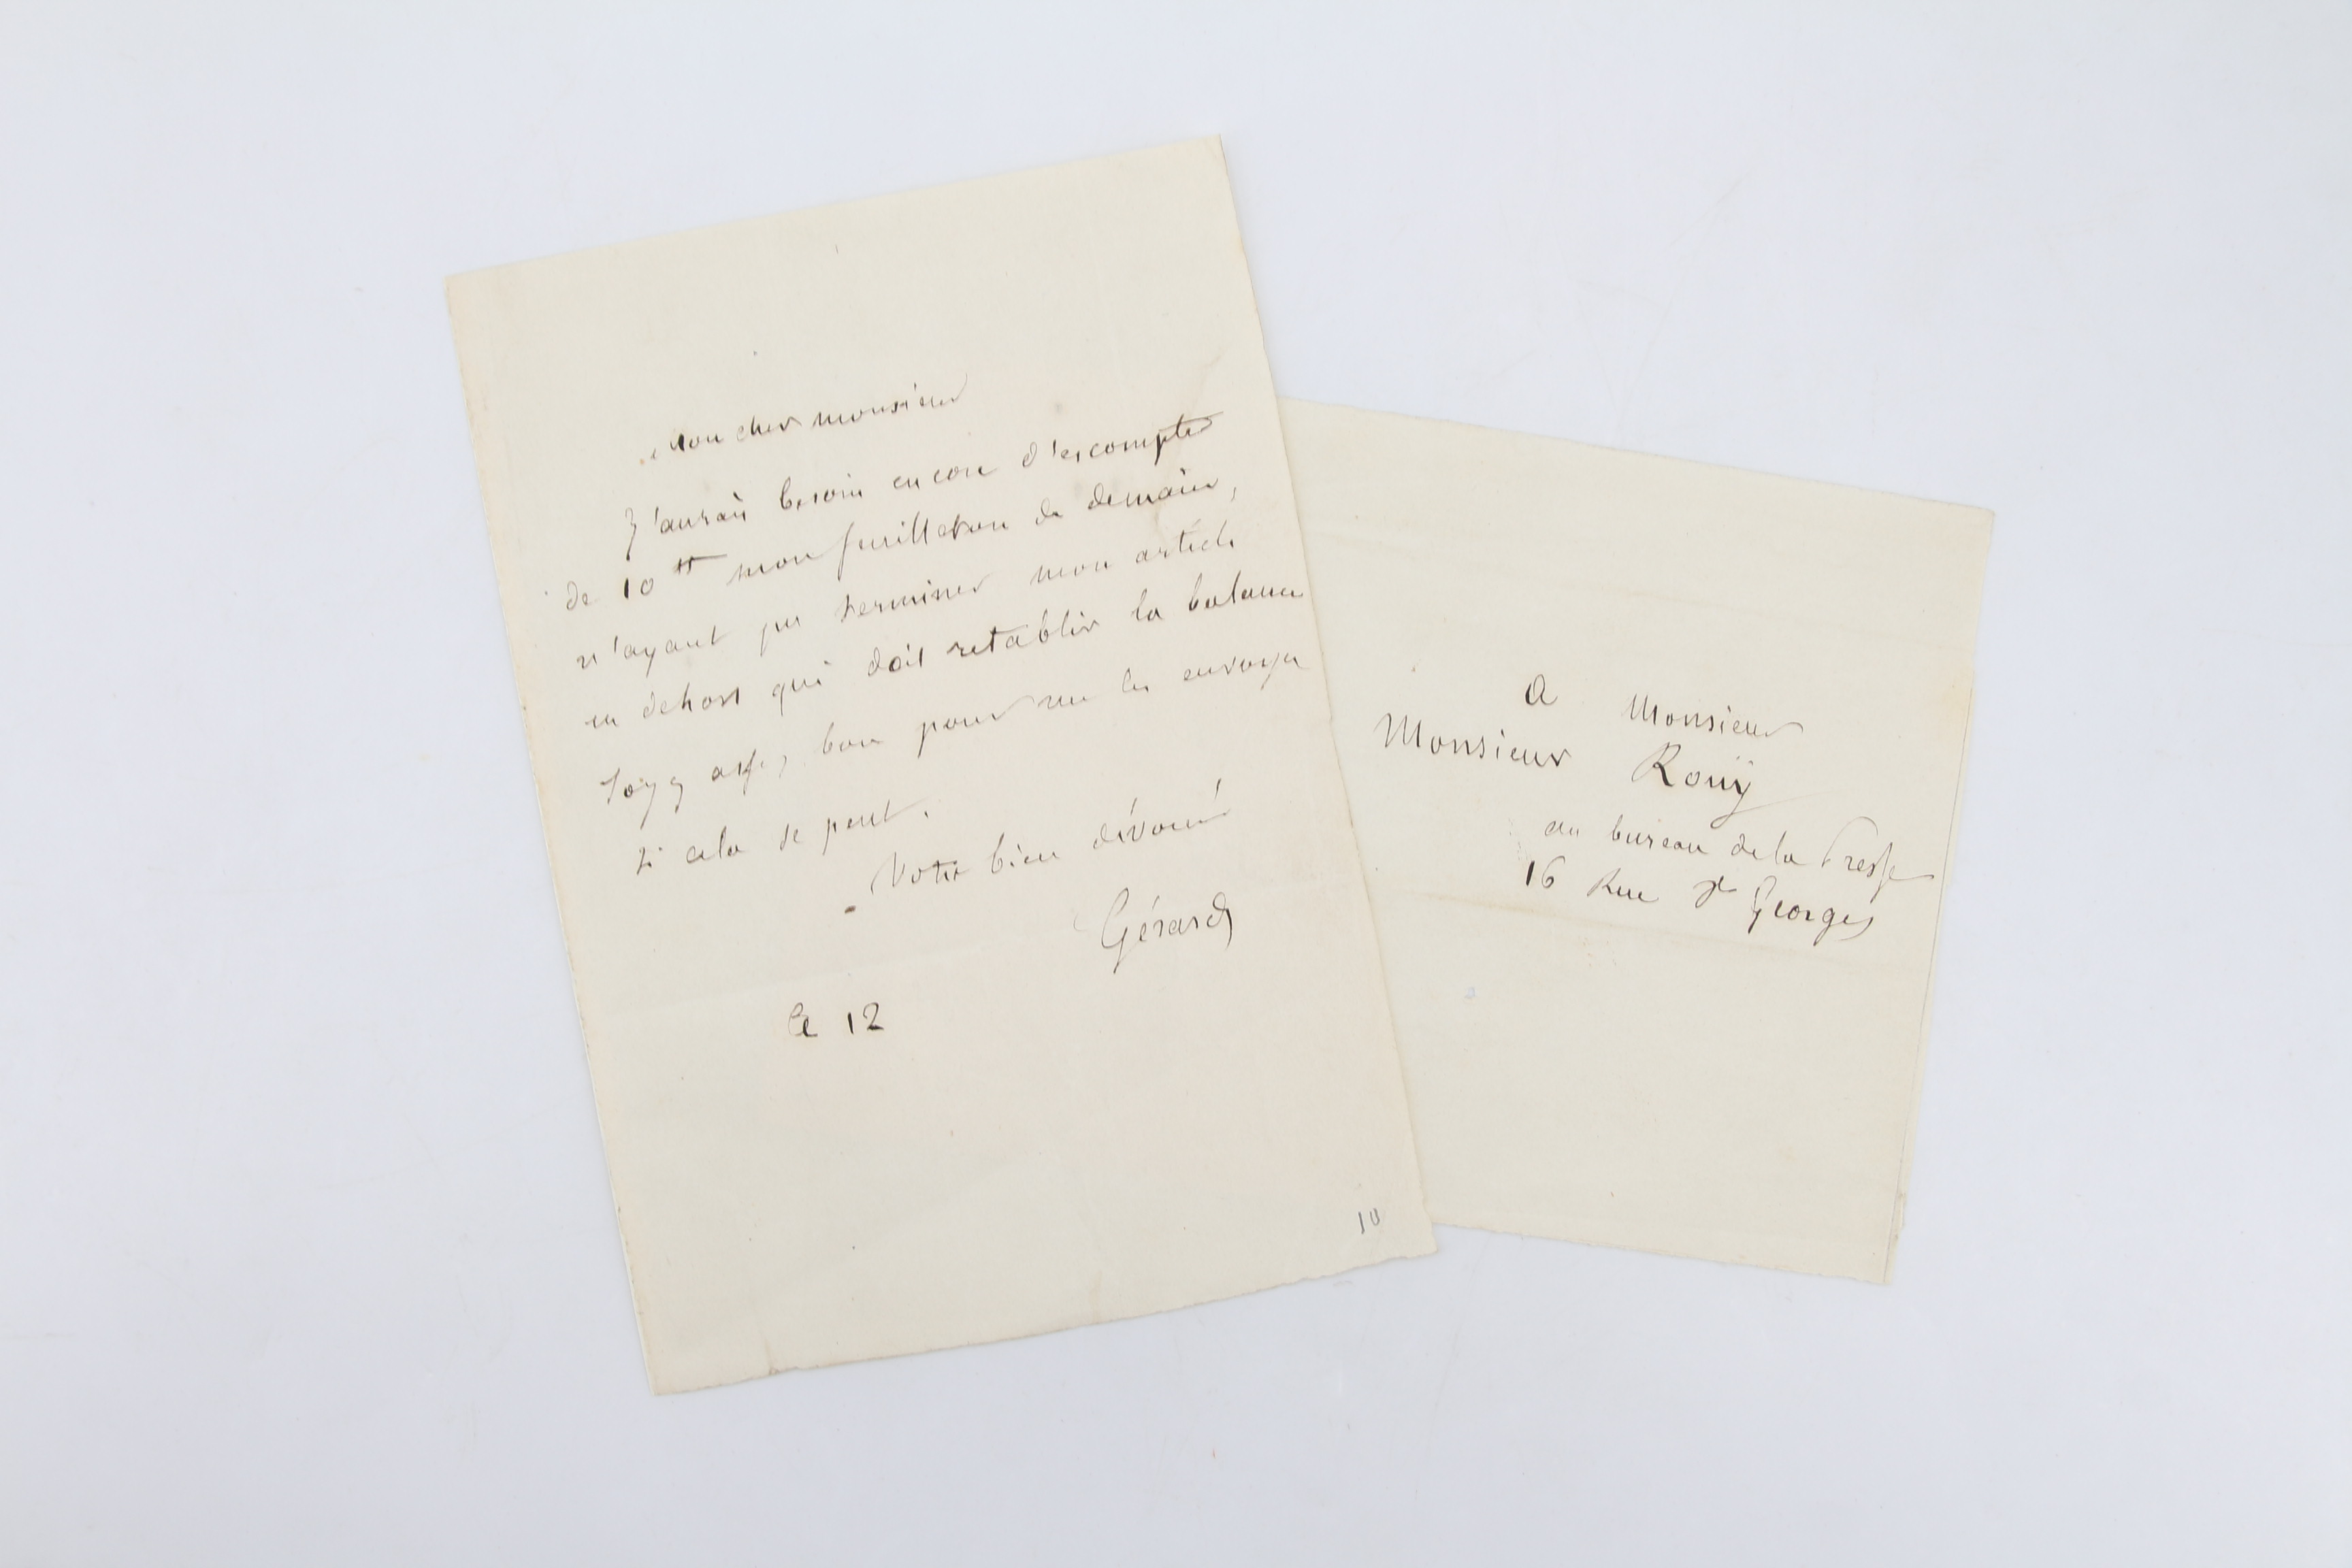 Mon cher monsieur
J'aurais besoin encore d'escompter
de 10 ₶ mon feuilleton de demain,
n'ayant pu terminer mon article
en dehors qui doit retablir la balance
Soyez assez bon pour me les envoyer
si cela se peut.
Votre bien dévoué
Gérard
Ce 12
10
A Monsieur
Monsieur Rouÿ
au bureau de la Presse
16 Rue St Georges